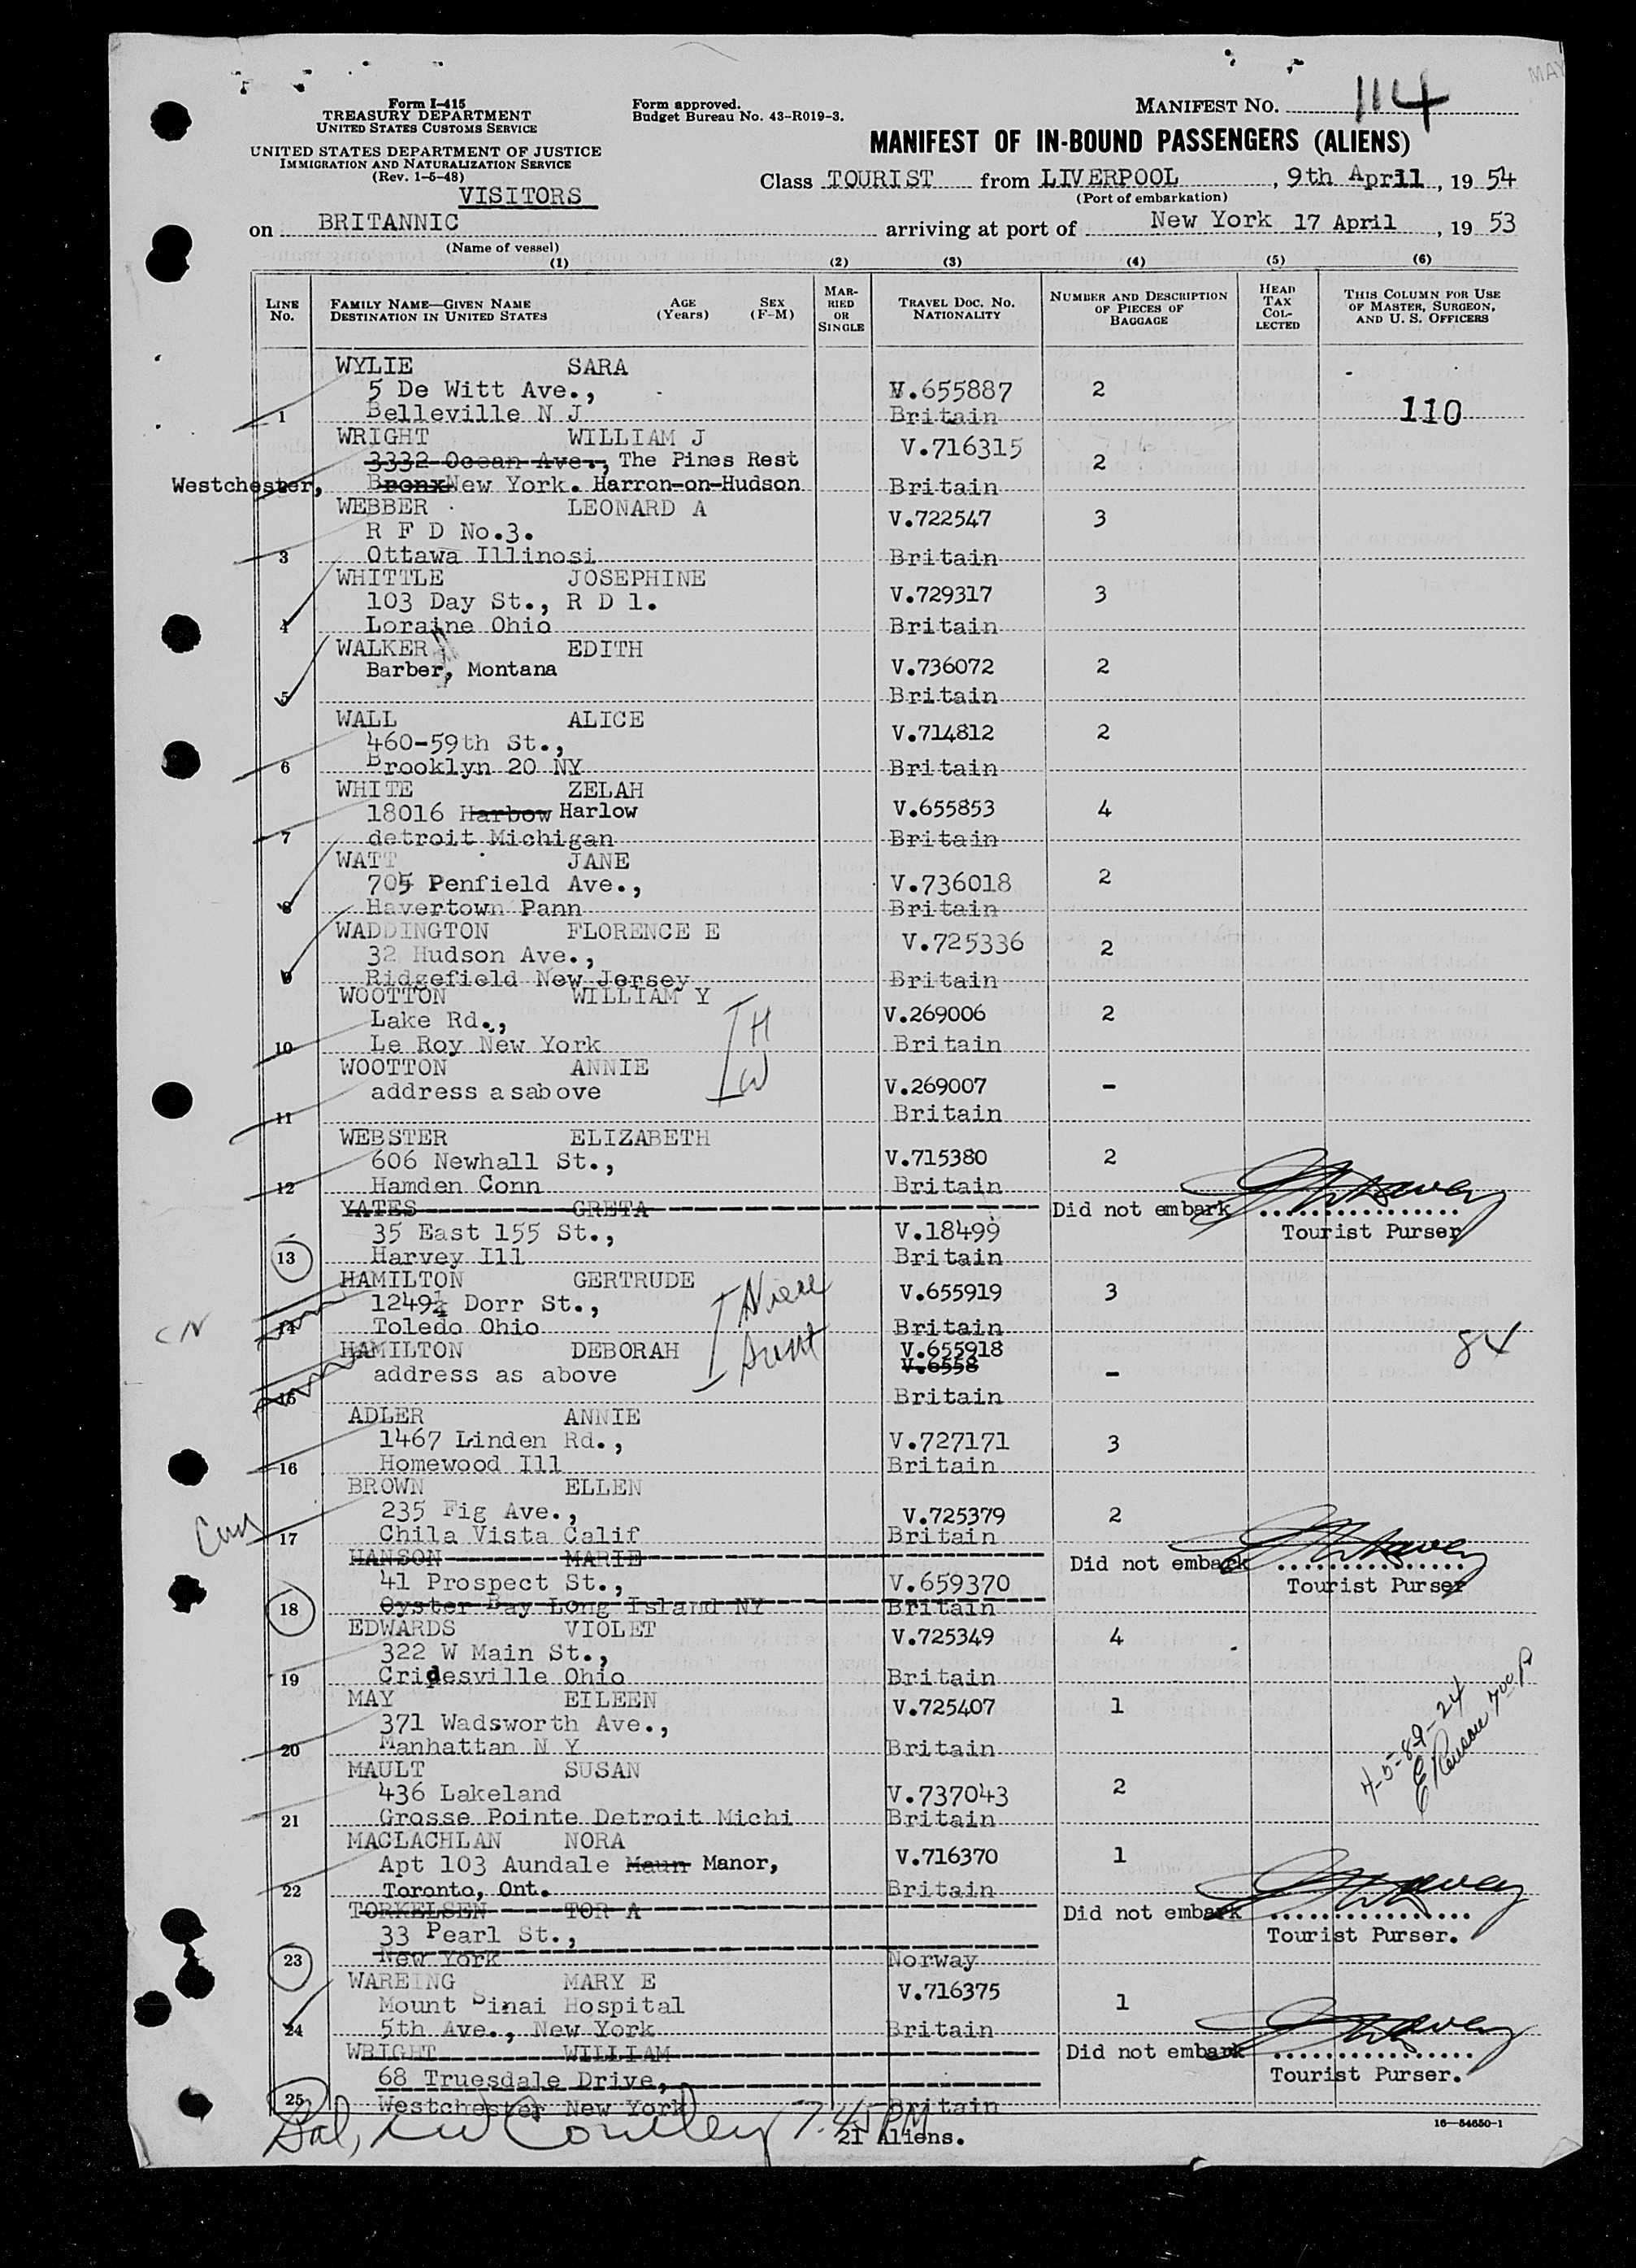 MAY
Form I-415
TREASURY DEPARTMENT
UNITED STATES CUSTOMS SERVICE
UNITED STATES DEPARTMENT OF JUSTICE
IMMIGRATION AND NATURALIZATION SERVICE
(Rev. 1-5-48)
VISITORS
Form approved.
Budget Bureau No. 43-R019-3.
MANIFEST NO. 114
MANIFEST OF IN-BOUND PASSENGERS (ALIENS)
Class TOURIST from LIVERPOOL, 9th April, 1954
(Port of embarkation)
on BRITANNIC arriving at port of New York 17 April, 1953
(Name of vessel)
(1) (2) (3) (4) (5) (6)
LINE NO. FAMILY NAME—GIVEN NAME DESTINATION IN UNITED STATES AGE (Years) SEX (F-M) MARRIED OR SINGLE TRAVEL DOC. NO. NATIONALITY NUMBER AND DESCRIPTION OF PIECES OF BAGGAGE HEAD TAX COLLECTED THIS COLUMN FOR USE OF MASTER, SURGEON, AND U. S. OFFICERS
WYLIE SARA
5 De Witt Ave., V.655887 2
1 Belleville N J Britain 110
WRIGHT WILLIAM J V.716315
3332 Ocean Ave., The Pines Rest 2
Westchester, Bronx New York. Harron-on-Hudson Britain
WEBBER LEONARD A V.722547 3
R F D No.3.
3 Ottawa Illinosi Britain
WHITTLE JOSEPHINE V.729317 3
103 Day St., R D 1.
4 Loraine Ohio Britain
WALKER EDITH V.736072 2
Barber, Montana
5 Britain
WALL ALICE V.714812 2
460-59th St.,
6 Brooklyn 20 NY Britain
WHITE ZELAH V.655853 4
18016 Harbow Harlow
7 detroit Michigan Britain
WATT JANE 2
705 Penfield Ave., V.736018
8 Havertown Pann Britain
WADDINGTON FLORENCE E V.725336 2
32 Hudson Ave.,
9 Ridgefield New Jersey Britain
WOOTTON WILLIAM Y V.269006 2
Lake Rd., H
10 Le Roy New York Britain
WOOTTON ANNIE V.269007 -
address asabove W
11 Britain
WEBSTER ELIZABETH V.715380 2
606 Newhall St.,
12 Hamden Conn Britain
YATES GRETA Did not embark
35 East 155 St., V.18499 Tourist Purser
13 Harvey Ill Britain
HAMILTON GERTRUDE V.655919 3
1249½ Dorr St., Niece
CN 14 Toledo Ohio Britain
HAMILTON DEBORAH Aunt V.655918 84
address as above V.6558 -
15 Britain
ADLER ANNIE
1467 Linden Rd., V.727171 3
16 Homewood Ill Britain
BROWN ELLEN
235 Fig Ave., V.725379 2
17 Chila Vista Calif Britain
HANSON MARIE Did not embark
41 Prospect St., V.659370 Tourist Purser
18 Oyster Bay Long Island NY Britain
EDWARDS VIOLET V.725349 4
322 W Main St.,
19 Cridesville Ohio Britain
MAY EILEEN V.725407 1
371 Wadsworth Ave.,
20 Manhattan N Y Britain
MAULT SUSAN 2
436 Lakeland V.737043
21 Grosse Pointe Detroit Michi Britain
MACLACHLAN NORA V.716370 1
Apt 103 Aundale Maun Manor,
22 Toronto, Ont. Britain
TORKELSEN TOR A Did not embark
33 Pearl St., Tourist Purser.
23 New York Norway
WAREING MARY E V.716375
Mount Sinai Hospital 1
24 5th Ave., New York Britain
WRIGHT WILLIAM Did not embark
68 Truesdale Drive, Tourist Purser.
25 Westchester New York Britain
7.45 PM
21 Aliens.
16—54650-1